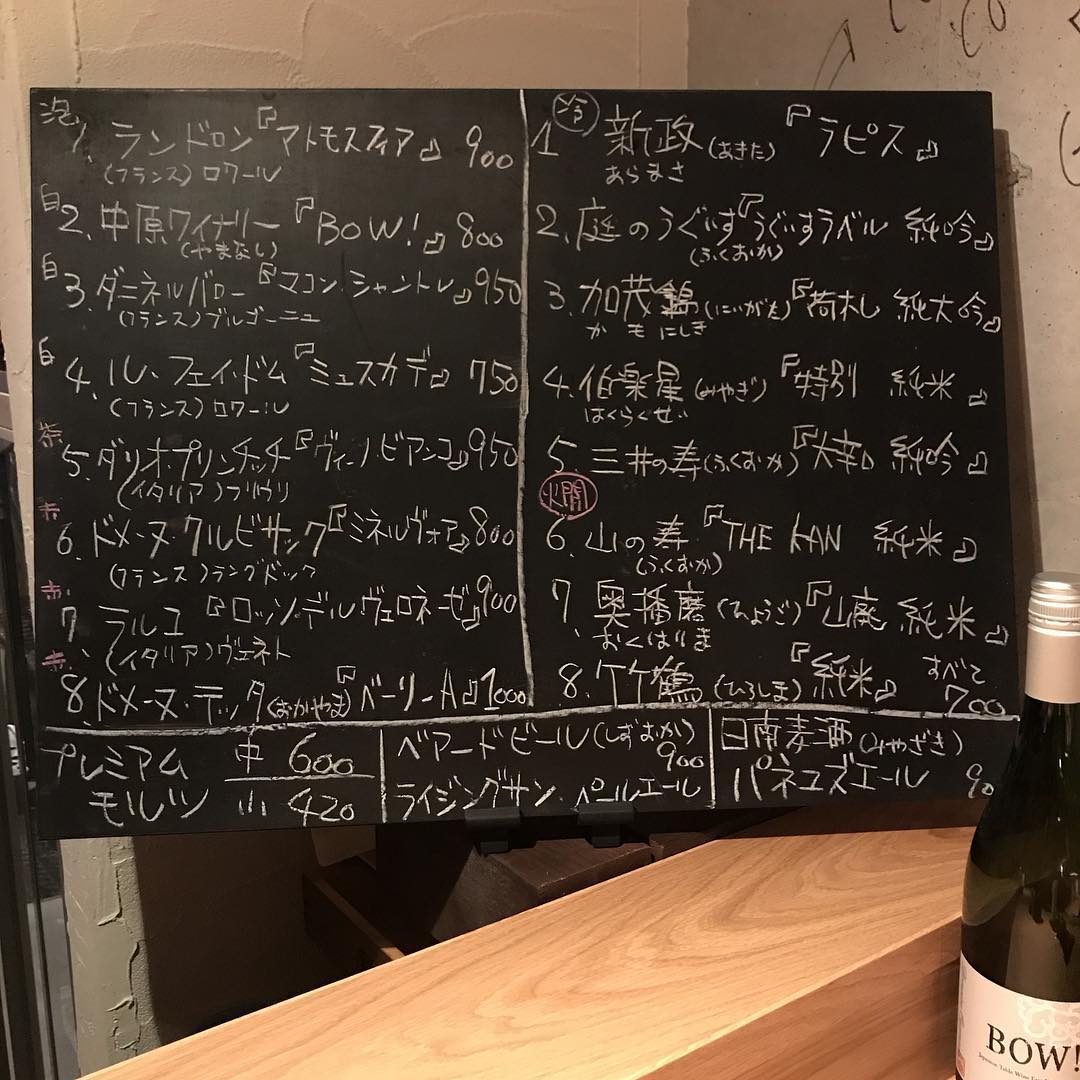 泡
1、ランドロン『アトモスフィア』 900
(フランス)ロワール
白
2、中原ワイナリー『BOW!』 800
(やまなし)
白
3、ダニエルバロー『マコン・シャントレ』950
(フランス)ブルゴーニュ
白
4、ル・フェイ・ドム『ミュスカデ』 750
(フランス)ロワール
茶
5、ダリオ・プリンチッチ『ヴィーノ・ビアンコ』950
(イタリア)フリウリ
赤
6、ドメーヌ・クルビサック『ミネルヴォア』800
(フランス)ラングドック
赤
7、ラルコ『ロッソ・デル・ヴェロネーゼ』900
(イタリア)ヴェネト
赤
8、ドメーヌ・テッタ(おかやま)『ベーリーA』1000
冷
1 新政(あきた)『ラピス』
あらまさ
2、庭のうぐいす『うぐいすラベル 純吟』
(ふくおか)
3、加茂錦(にいがた)『荷札 純大吟』
かもにしき
4、伯楽星(みやぎ)『特別 純米』
はくらくせい
5、三井の寿(ふくおか)『大辛口 純吟』
燗
6、山の寿『THE KAN 純米』
(ふくおか)
7、奥播磨(ひょうご)『山廃 純米』
おくはりま
8、竹鶴(ひろしま)『純米』 すべて
700
プレミアム モルツ
中 600
小 420
ベアードビール(しずおか)
900
ライジングサン・ペールエール
日南麦酒(みやざき)
パネユズエール 90
BOW!